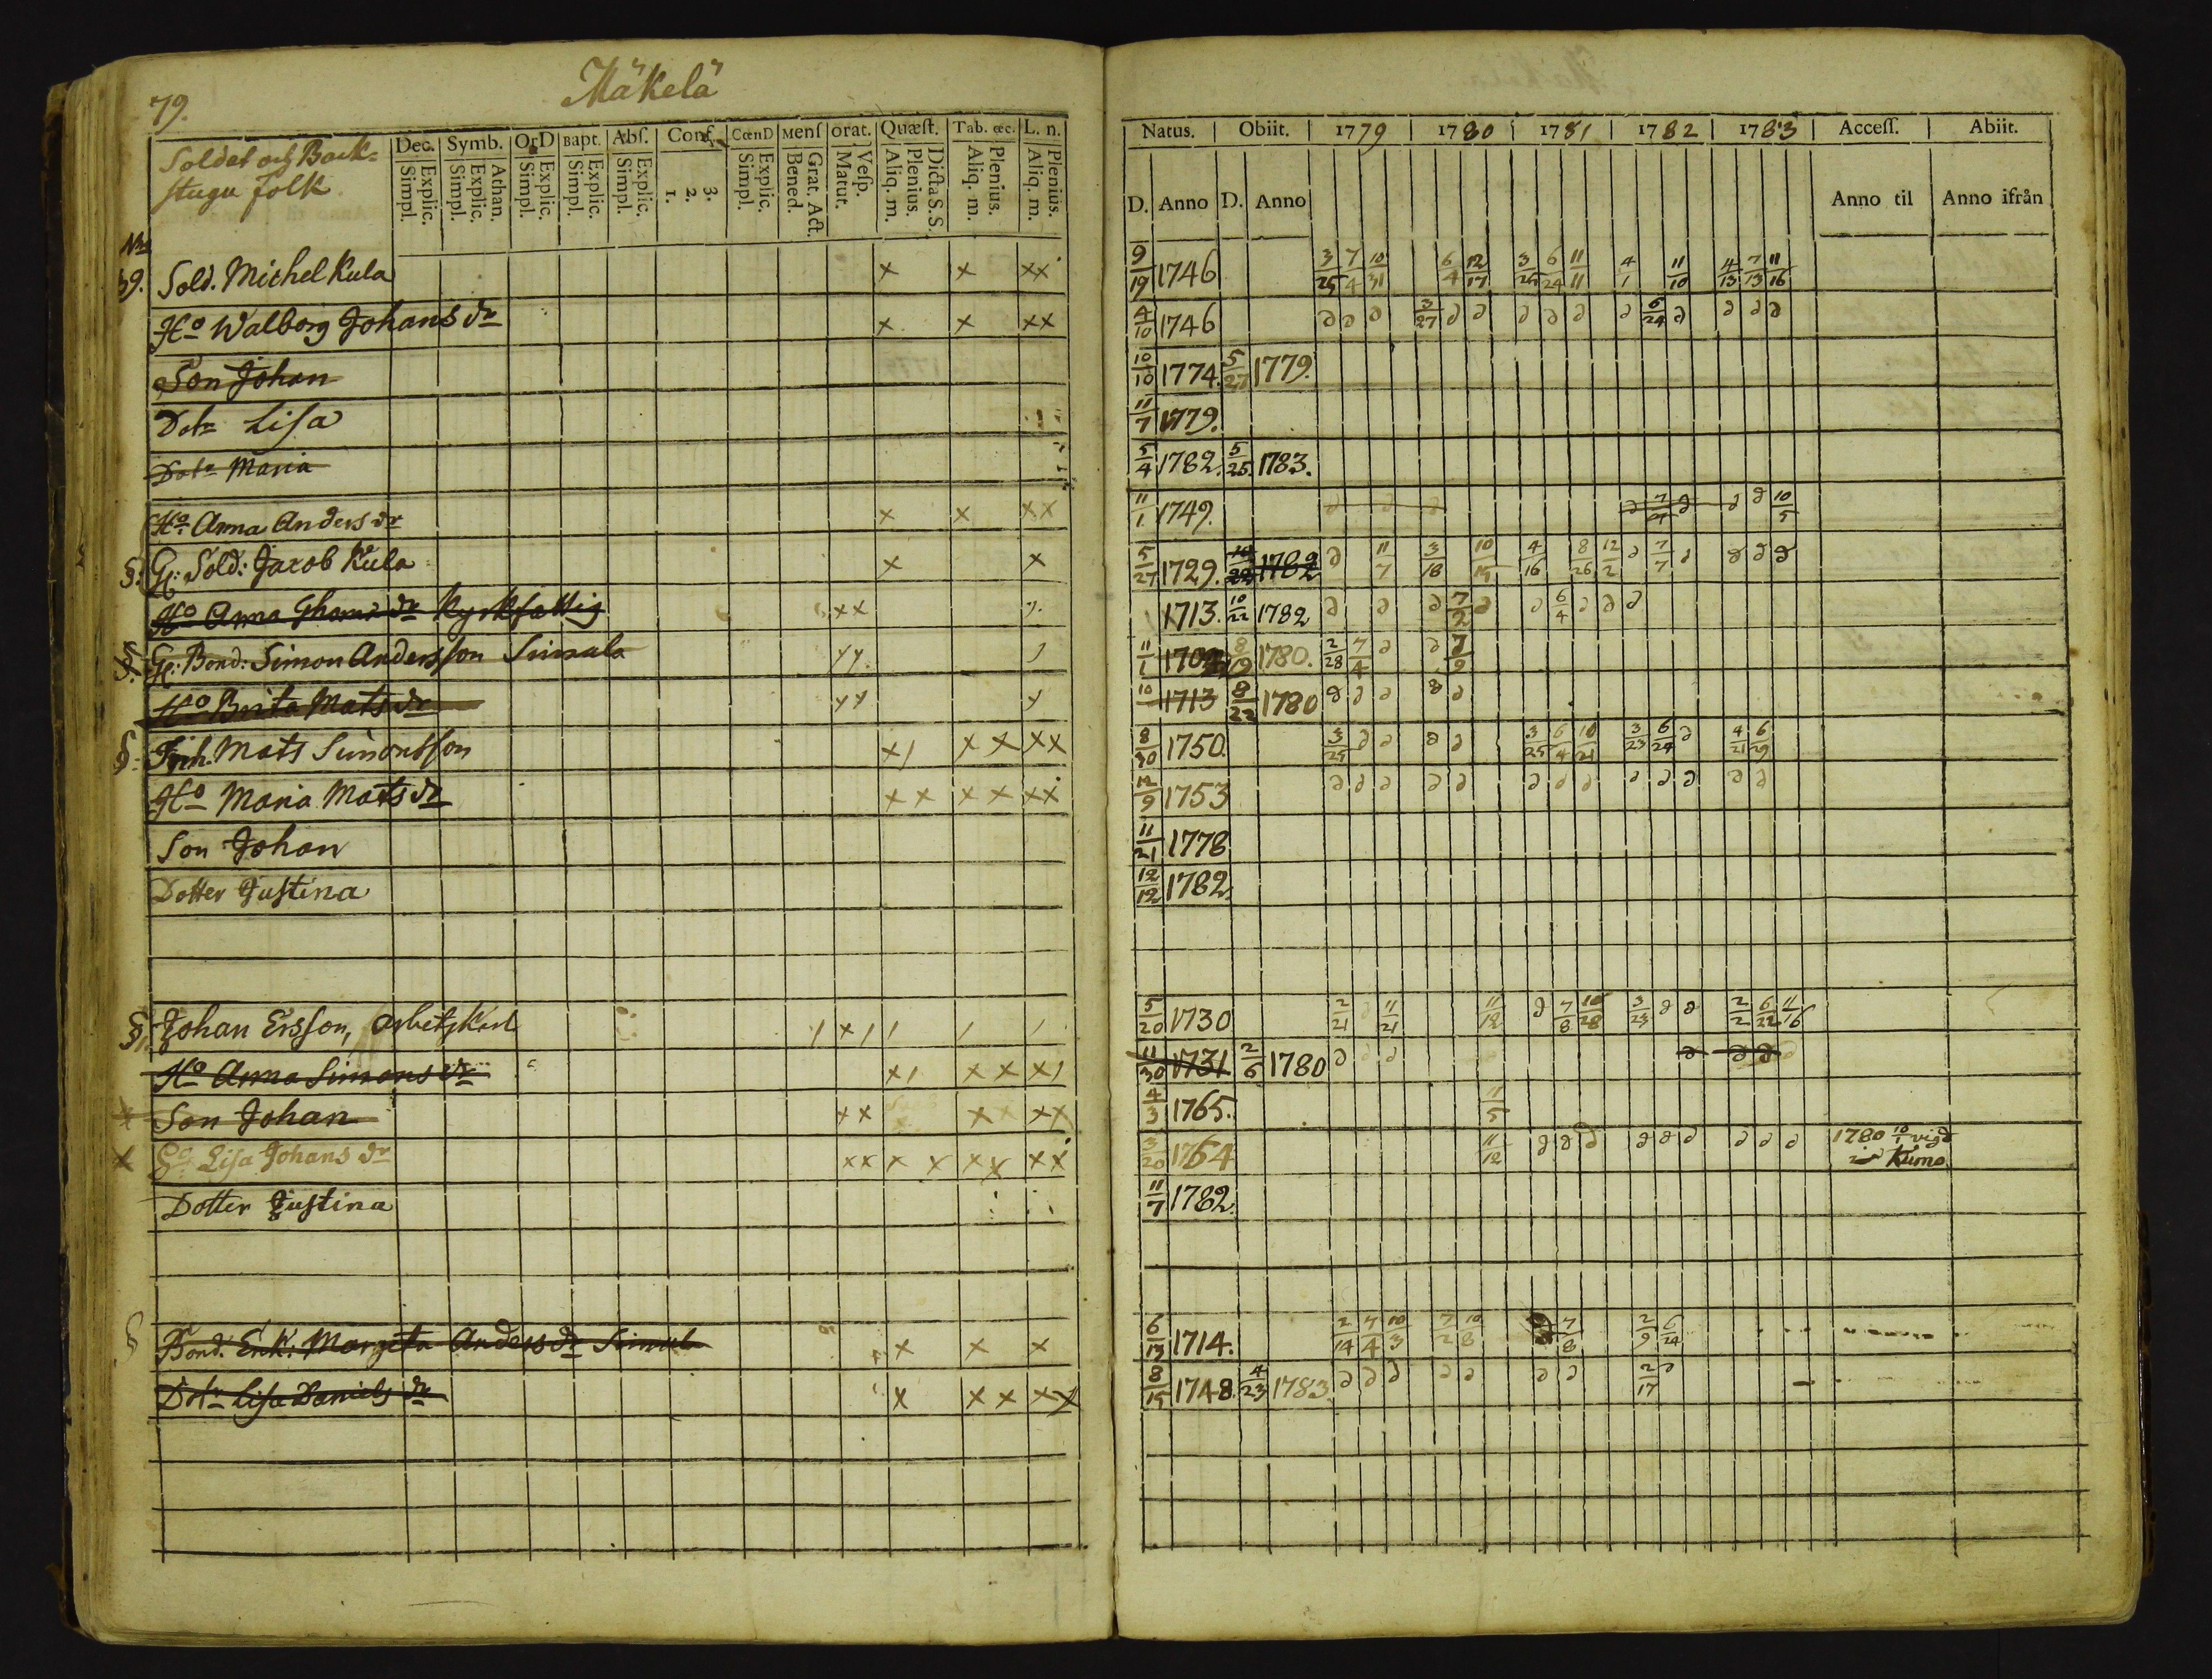 79.
Mäkelä
Soldet och Back=
stugu folk
Dec. Symb. OrD Bapt. Abs. Conf. CœnD Mens orat. Quæst. Tab. œc. L. n.
Explic. Simpl. Athan. Explic. Simpl. Explic. Simpl. Explic. Simpl. Explic. Simpl. 3. 2. 1. Explic. Simpl. Grat. Act. Bened. Vesp. Matut. Dicta S. S. Plenius. Aliq. m. Plenius. Aliq. m. Plenius. Aliq. m.
Natus. Obiit. 1779 1780 1781 1782 1783 Access. Abiit.
D. Anno D. Anno Anno til Anno ifrån
No
39. Sold. Michel Kula x x xx 9/19 1746 3/25 7/4 10/31 6/4 12/17 3/25 6/24 11/11 4/1 11/10 4/13 7/13 11/16
Ho Walborg Johans dr x x xx 4/10 1746 ∂ ∂ ∂ 3/27 ∂ ∂ ∂ ∂ ∂ ∂ 6/24 ∂ ∂ ∂ ∂
Son Johan 10/10 1774. 5/27 1779.
Dotr Lisa 11/7 1779.
Dotr Maria 5/4 1782. 5/25. 1783.
Ho Anna Anders dr x x xx 11/1 1749. ∂ ∂ ∂ ∂ ∂ ∂ ∂ 10/5
§: Gl: Sold: Jacob Kula x x 5/27 1729. 1782 ∂ 11/7 3/18 10/15 4/16 8/26 12/2 ∂ 7/7 ∂ ∂ ∂ ∂
Ho Anna Thomæ dr Kyrkfattig xx 1713. 10/22 1782 ∂ ∂ ∂ 7/2 ∂ ∂ 6/4 ∂ ∂ ∂
§. Gl: Bond: Simon Andersson Simula 11/1 8/19 1780. 2/28 7/4 ∂ ∂ 7/9
Ho Brita Mats dr 1713 8/22 1780 ∂ ∂ ∂ ∂ ∂
§: Inh. Mats Simonsson x/ xx xx 8/30 1750. 3/25 ∂ ∂ ∂ ∂ 3/25 6/4 10/21 3/23 6/24 ∂ 4/21 6/29
Ho Maria Mats dr xx xx xx 12/9 1753 ∂ ∂ ∂ ∂ ∂ ∂ ∂ ∂ ∂ ∂ ∂ ∂ ∂
Son Johan 11/21 1778
Dotter Justina 12/12 1782.
§. Johan Ersson, arbetskarl / x / / / / 5/20 1730 2/21 11/21 11/12 ∂ 7/8 10/28 3/23 ∂ ∂ 2/2 6/22 11/16
Ho Anna Simons dr x/ xx x/ 11/30 1731 2/6 1780 ∂ ∂ ∂ ∂ ∂ ∂
x Son Johan xx xx xx 4/3 1765. 11/5
x Lisa Johans dr xx xx xx xx 3/20 1764 11/12 ∂ ∂ ∂ ∂ ∂ ∂ ∂ ∂ ∂ 1780 10/1 vigd
Kumo
Dotter Justina 11/7 1782.
§ Bond: Enk: Margeta Anders dr Simula x x x 6/13 1714. 2/14 7/4 10/3 7/2 10/8 7/8 2/9 6/24
Dotr Lisa Daniels dr x xx xx 8/15 1748. 4/23 1783. ∂ ∂ ∂ ∂ ∂ ∂ ∂ 2/17 ∂